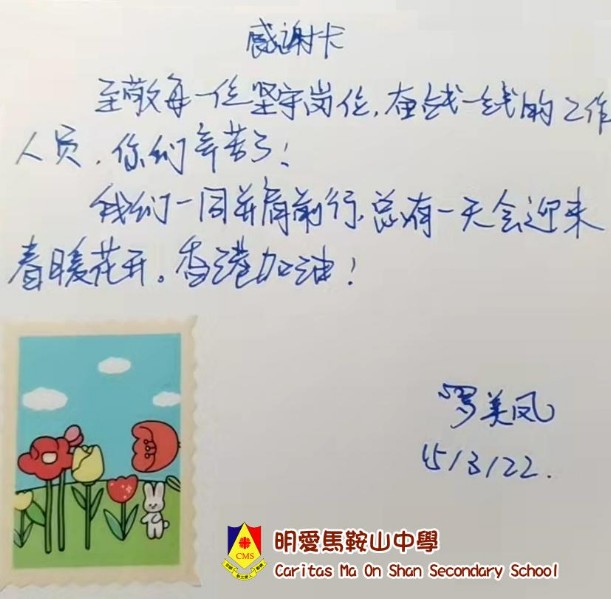 感谢卡
至敬每一位坚守岗位,奋战一线的工作
人员,你们辛苦了!
我们一同并肩前行,总有一天会迎来
春暖花开。香港加油!
罗美凤
15/3/22.
CMS
明愛馬鞍山中學
Caritas Ma On Shan Secondary School